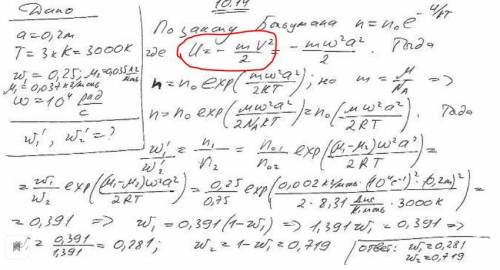 10.14
Дано
a=0,2м
T=3кК=3000К
w₁=0,25; μ₁=0,035 кг/моль
μ₁=0,037 кг/моль
ω=10⁴ рад/с
w₁', w₂'=?
По закону Больцмана n=n₀e^(-U/kT)
где U=-mV²/2=-mω²a²/2. Тогда
n=n₀exp(mω²a²/2kT); но m=μ/N_A =>
n=n₀exp(μω²a²/2N_AkT)=n₀(μω²a²/2RT). Тогда
w₁'/w₂'=n₁/n₂=n₀₁/n₀₂ exp((μ₁-μ₂)ω²a²/2RT)=
=w₁/w₂ exp((μ₁-μ₂)ω²a²/2RT)=0,25/0,75 exp(0,002кг/моль·(10⁴c⁻¹)²·(0,2м)²/2·8,31 Дж/К·моль·3000К)=
=0,391 => w₁=0,391(1-w₁) => 1,391w₁=0,391 =>
=0,391/1,391=0,281; w₂=1-w₁=0,719
Ответ: w₁=0,281
w₂=0,719